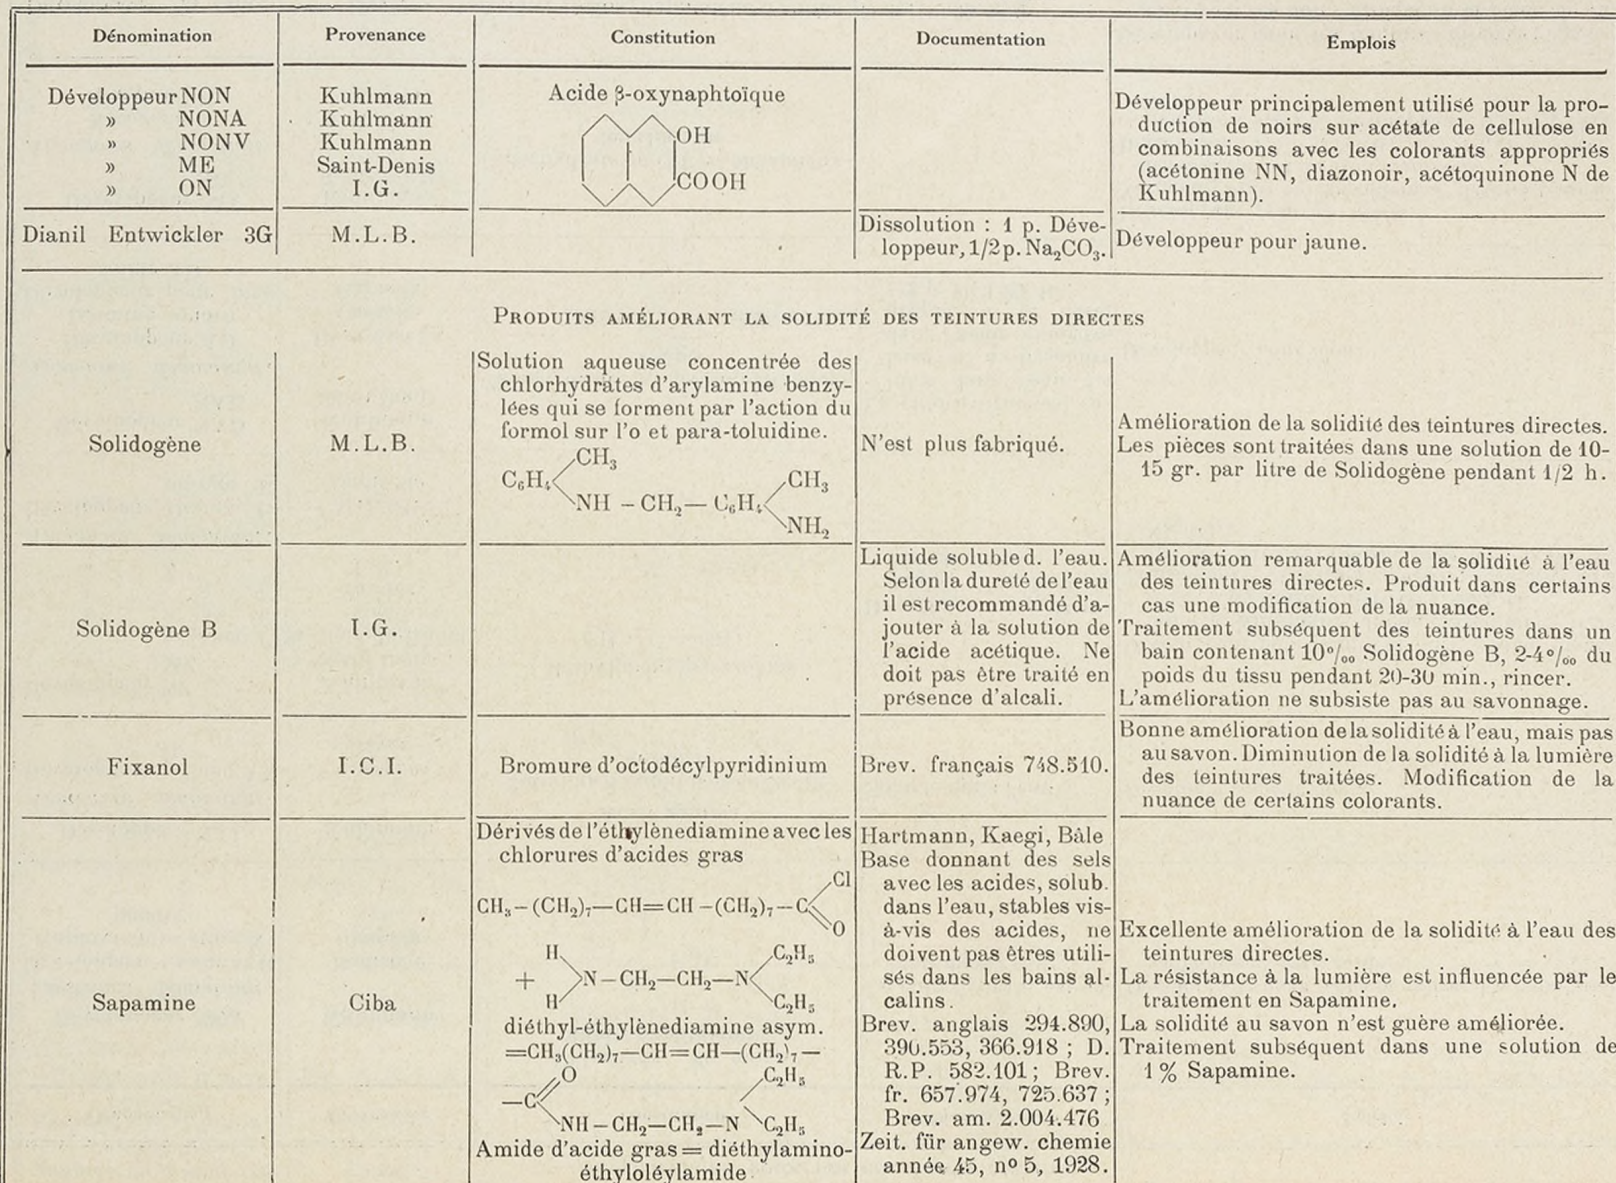 Dénomination Provenance Constitution Documentation Emplois
Développeur NON
» NONA
» NONV
» ME
» ON
Kuhlmann
Kuhlmann
Kuhlmann
Saint-Denis
I.G.
Acide β-oxynaphtoïque
OH
COOH
Développeur principalement utilisé pour la pro-
duction de noirs sur acétate de cellulose en
combinaisons avec les colorants appropriés
(acétonine NN, diazonoir, acétoquinone N de
Kuhlmann).
Dianil Entwickler 3G
M.L.B.
Dissolution : 1 p. Déve-
loppeur, 1/2 p. Na₂CO₃.
Développeur pour jaune.
PRODUITS AMÉLIORANT LA SOLIDITÉ DES TEINTURES DIRECTES
Solidogène
M.L.B.
Solution aqueuse concentrée des
chlorhydrates d'arylamine benzy-
lées qui se forment par l'action du
formol sur l'o et para-toluidine.
CH₃
C₆H₄ CH₃
NH – CH₂ — C₆H₄
NH₂
N'est plus fabriqué.
Amélioration de la solidité des teintures directes.
Les pièces sont traitées dans une solution de 10-
15 gr. par litre de Solidogène pendant 1/2 h.
Solidogène B
I.G.
Liquide soluble d. l'eau.
Selon la dureté de l'eau
il est recommandé d'a-
jouter à la solution de
l'acide acétique. Ne
doit pas être traité en
présence d'alcali.
Amélioration remarquable de la solidité à l'eau
des teintures directes. Produit dans certains
cas une modification de la nuance.
Traitement subséquent des teintures dans un
bain contenant 10 °/₀₀ Solidogène B, 2-4 °/₀₀ du
poids du tissu pendant 20-30 min., rincer.
L'amélioration ne subsiste pas au savonnage.
Fixanol
I.C.I.
Bromure d'octodécylpyridinium
Brev. français 748.510.
Bonne amélioration de la solidité à l'eau, mais pas
au savon. Diminution de la solidité à la lumière
des teintures traitées. Modification de la
nuance de certains colorants.
Sapamine
Ciba
Dérivés de l'éthylènediamine avec les
chlorures d'acides gras
Cl
CH₃–(CH₂)₇—CH=CH–(CH₂)₇–C
O
H C₂H₅
+ N–CH₂—CH₂–N
H C₂H₅
diéthyl-éthylènediamine asym.
=CH₃(CH₂)₇—CH=CH—(CH₂)₇—
O C₂H₅
—C
NH–CH₂—CH₂–N C₂H₅
Amide d'acide gras = diéthylamino-
éthyloléylamide
Hartmann, Kaegi, Bâle
Base donnant des sels
avec les acides, solub.
dans l'eau, stables vis-
à-vis des acides, ne
doivent pas êtres utili-
sés dans les bains al-
calins.
Brev. anglais 294.890,
390.553, 366.918 ; D.
R.P. 582.101 ; Brev.
fr. 657.974, 725.637 ;
Brev. am. 2.004.476
Zeit. für angew. chemie
année 45, nº 5, 1928.
Excellente amélioration de la solidité à l'eau des
teintures directes.
La résistance à la lumière est influencée par le
traitement en Sapamine.
La solidité au savon n'est guère améliorée.
Traitement subséquent dans une solution de
1 % Sapamine.